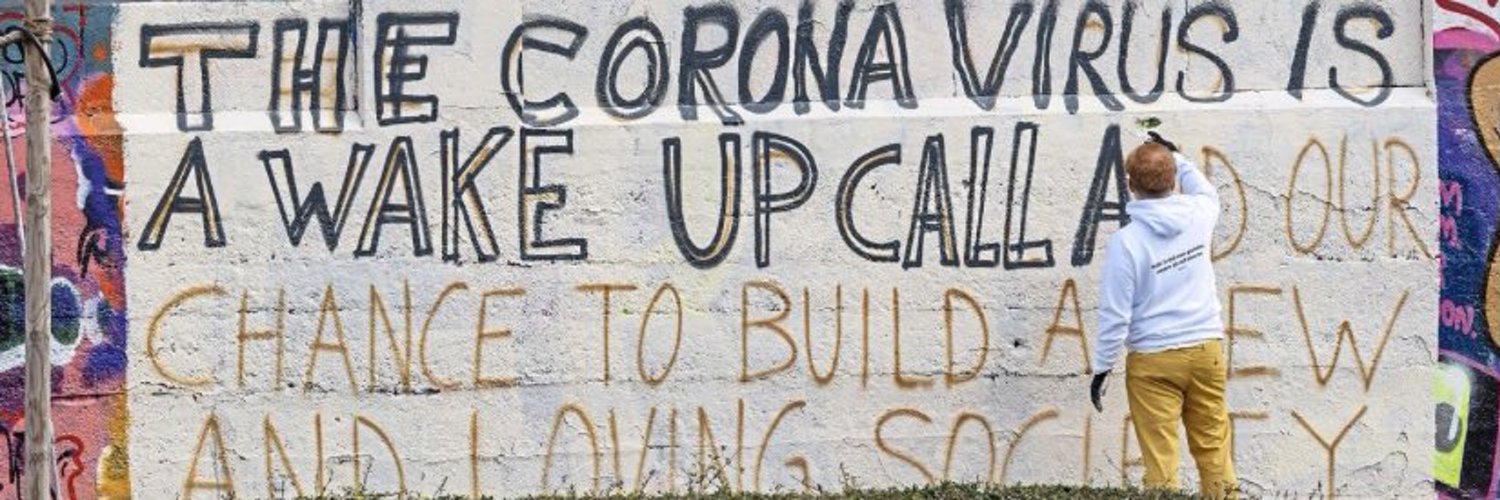 THE CORONA VIRUS IS
A WAKE UP CALL AND OUR
CHANCE TO BUILD A NEW
AND LOVING SOCIETY